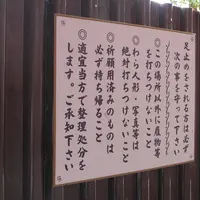 足止めをされる方は必ず
次の事を守って下さい
◎この場所以外に履物等
を打ちつけないこと
◎わら人形・写真等は
絶対打ちつけないこと
◎祈願用済みのものは
必ず持ち帰ること
◎適宜当方で整理処分を
します。ご承知下さい